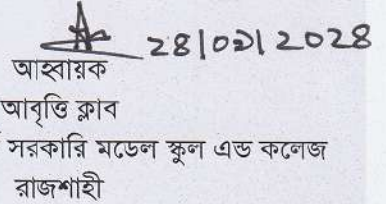 ২৪|০৯|২০২৪
আহ্বায়ক
আবৃত্তি ক্লাব
সরকারি মডেল স্কুল এন্ড কলেজ
রাজশাহী